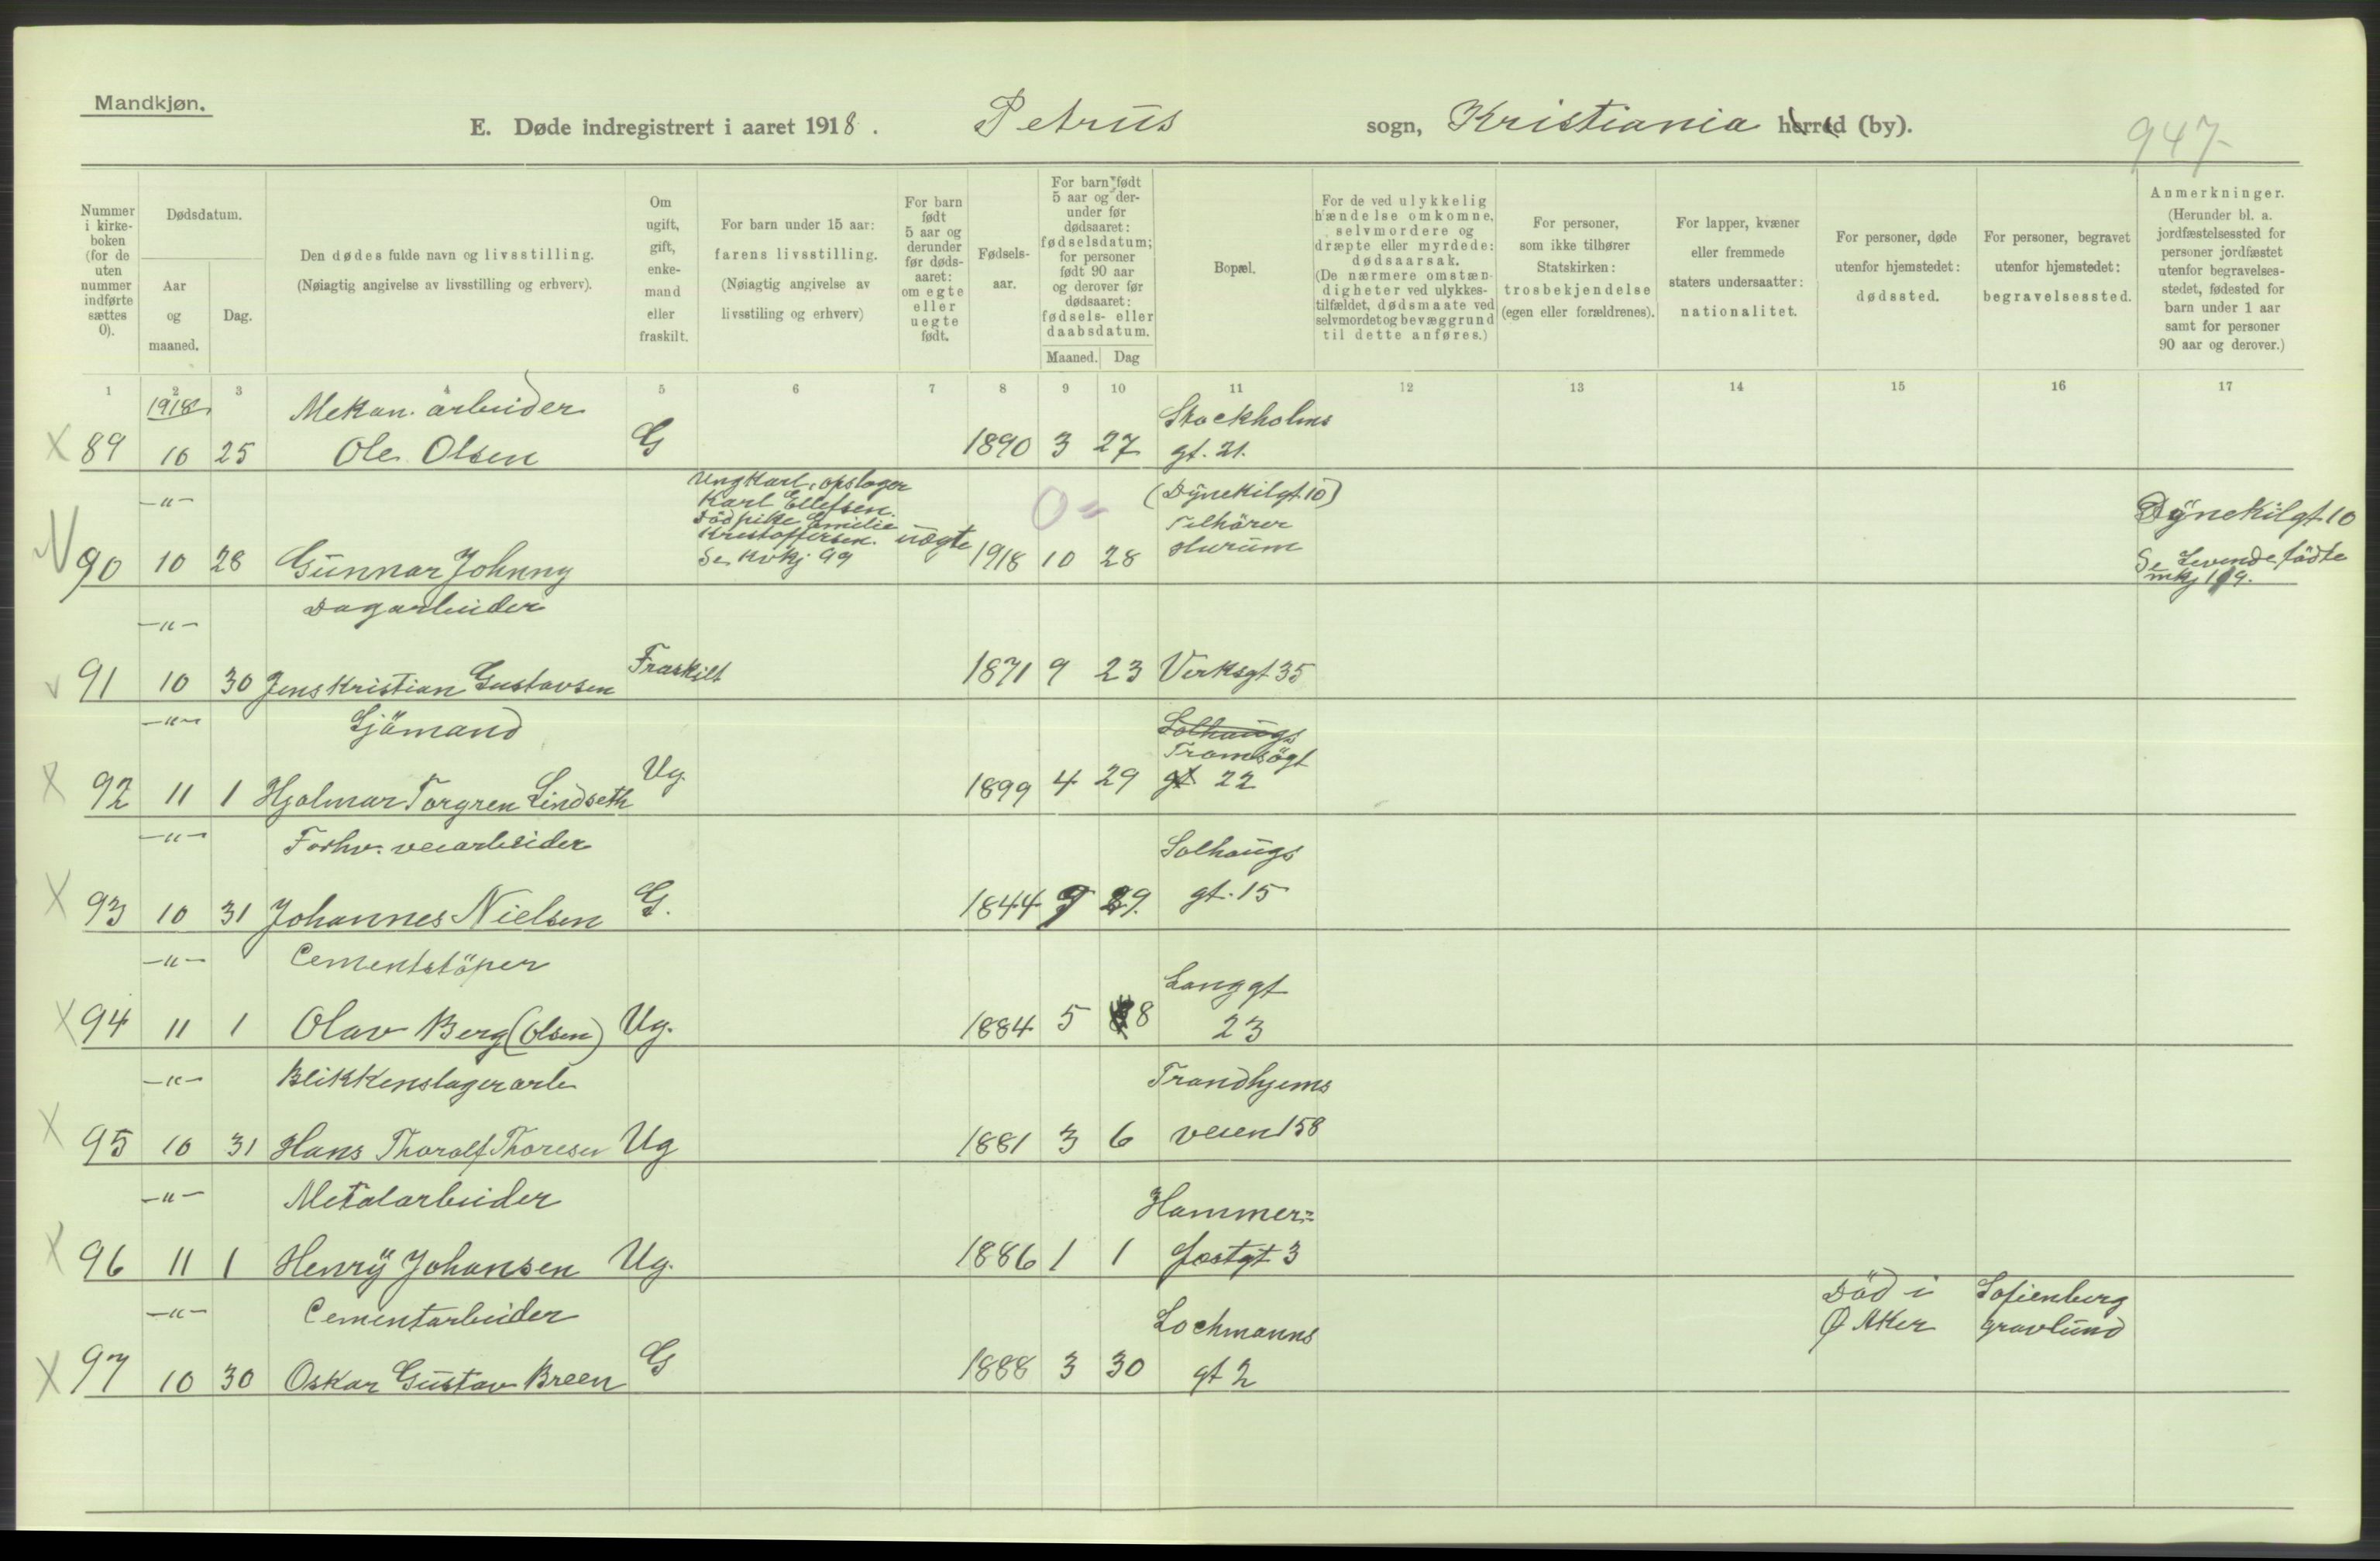 Mandkjøn.
E. Døde indregistrert i aaret 1918. Petrus sogn, Kristiania herred (by).
947
Nummer i kirkeboken (for de uten nummer indførte sættes 0).
Dødsdatum.
Aar og maaned.
Dag.
Den dødes fulde navn og livsstilling.
(Nøiagtig angivelse av livsstilling og erhverv).
Om ugift, gift, enkemand eller fraskilt.
For barn under 15 aar:
farens livsstilling.
(Nøiagtig angivelse av livsstiling og erhverv)
For barn født 5 aar og derunder før dødsaaret: om egte eller uegte født.
Fødselsaar.
For barn født 5 aar og derunder før dødsaaret: fødselsdatum; for personer født 90 aar og derover før dødsaaret: fødsels- eller daabsdatum.
Maaned. Dag
Bopæl.
For de ved ulykkelig hændelse omkomne, selvmordere og dræpte eller myrdede: dødsaarsak.
(De nærmere omstændigheter ved ulykkestilfældet, dødsmaate ved selvmordet og bevæggrund til dette anføres.)
For personer, som ikke tilhører Statskirken: trosbekjendelse (egen eller forældrenes).
For lapper, kvæner eller fremmede staters undersaatter: nationalitet.
For personer, døde utenfor hjemstedet: dødssted.
For personer, begravet utenfor hjemstedet: begravelsessted.
Anmerkninger.
(Herunder bl. a. jordfæstelsessted for personer jordfæstet utenfor begravelsesstedet, fødested for barn under 1 aar samt for personer 90 aar og derover.)
1 2 3 4 5 6 7 8 9 10 11 12 13 14 15 16 17
1918 Mekan. arbeider Stockholms
X 89 10 25 Ole Olsen G 1890 3 27 gt. 21.
—"— Ungkarl, opslager (Dynekilgt 10) Dynekilgt 10
Karl Ellefsen. Tilhører
Födpike Emilie Hurum
Kristoffersen. uegte
90 10 28 Gunnar Johnny Se kvkj 99 1918 10 28 Se Levende fødte mkj 119.
—"— Dagarbeider
v 91 10 30 Jens Kristian Gustavsen Fraskilt 1871 9 23 Verksgt 35
—"— Sjömand Solhaugs
Tromsögt
X 92 11 1 Hjalmar Torgren Lindseth Ug. 1899 4 29 gt 22
—"— Forhv. veiarbeider Solhaugs
X 93 10 31 Johannes Nielsen G. 1844 9 29. gt. 15
—"— Cementstöper Langgt
X 94 11 1 Olav Berg (Olsen) Ug. 1884 5 8 23
—"— Blikkenslagerarb Trondhjems
X 95 10 31 Hans Thoralf Thoresen Ug 1881 3 6 veien 158
—"— Metalarbeider Hammer=
X 96 11 1 Henry Johansen Ug. 1886 1 1 fastgt 3
—"— Cementarbeider Lochmanns Död i Ø Aker Sofienberg gravlund
X 97 10 30 Oskar Gustav Breen G 1888 3 30 gt 2